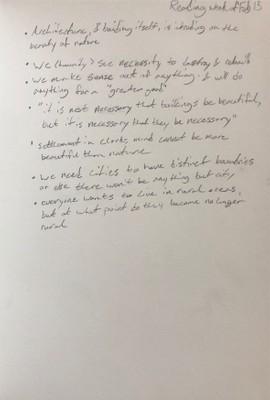 Reading week of Feb 13
• Architecture, & building itself, is intruding on the
beauty of nature
• We (humanity) see necessity to destroy & rebuild
• We make sense out of anything & will do
anything for a "greater good"
• "it is not necessary that buildings be beautiful,
but it is necessary that they be necessary"
• settlement in clarke mind cannot be more
beautiful than nature
• We need cities to have distinct boundries
or else there won't be anything but city
• everyone wants to live in rural areas,
but at what point do they become no longer
rural